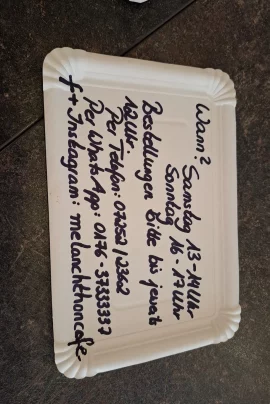 Wann? Samstag 13-14Uhr
Sonntag 16-17Uhr
Bestellungen bitte bis jeweils
12Uhr
Per Telefon: 07252/2362
Per WhatsApp: 0176-37333337
f + Instagram: melanchthoncafe